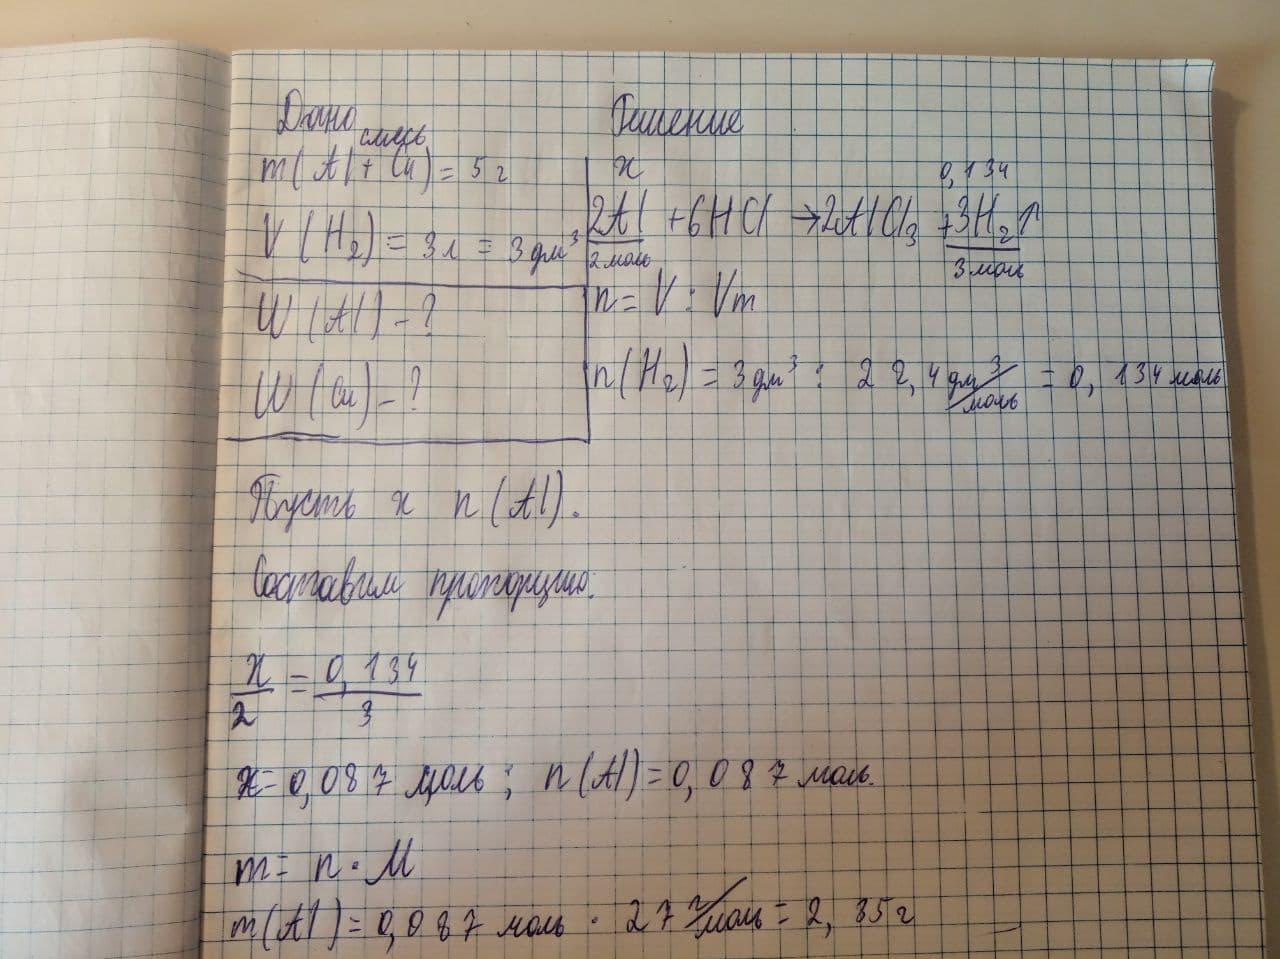 Дано
Решение
смесь
m(Al + Cu) = 5 г
V(H₂) = 3 л = 3 дм³
W(Al) - ?
W(Cu) - ?
x 0,134
2Al + 6HCl → 2AlCl₃ + 3H₂↑
2 моль 3 моль
n = V : Vm
n(H₂) = 3 дм³ : 22,4 дм³/моль = 0,134 моль
Пусть x n(Al).
Составим пропорцию:
x/2 = 0,134/3
x = 0,087 моль; n(Al) = 0,087 моль.
m = n · M
m(Al) = 0,087 моль · 27 г/моль = 2,35 г